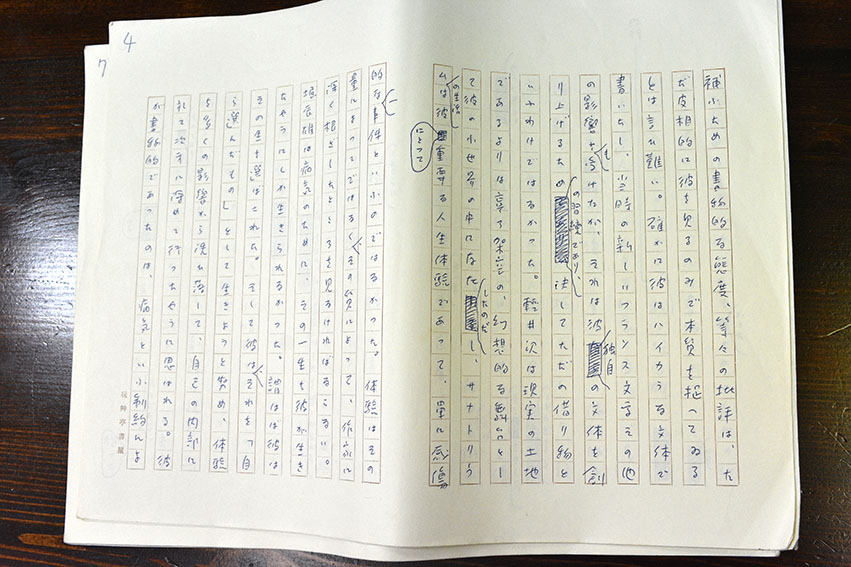 4
7
補ふための書物的な態度、等々の批評は、た
だ皮相的に彼を見るのみで本質を抠ってゐる
とは言ひ難い。確かに彼はハイカラな文体で
書いたし、当時の新しいフランス文学その他
の影響も受けたが、それは彼独自の文体を創
り上げるための習練であり、決してただの借り物と
いふわけではなかった。軽井沢は現実の土地
であるよりは寧ろ架空の、幻想的な舞台とし
て彼の小世界の中に存在したのだし、サナトリウ
ムの生活は彼にとって重要な人生体験であって、単に感傷
的な事件といふのではなかった。体験はその
量によってではなく、その質によって、作家に
深く根ざしたところを見なければならない。
堀辰雄は病気のために、その一生を彼が生き
たやうにしか生きられなかった。謂はば彼は
その生を選ばされた。そして彼はそれを「自
ら選んだもの」として生きようと努め、体験
も多くの影響から洗ひ落して、自己の内部に
於て次第に深めて行ったやうに思はれる。彼
が書物的であったのは、病気といふ制約によ
玩艸亭書屋